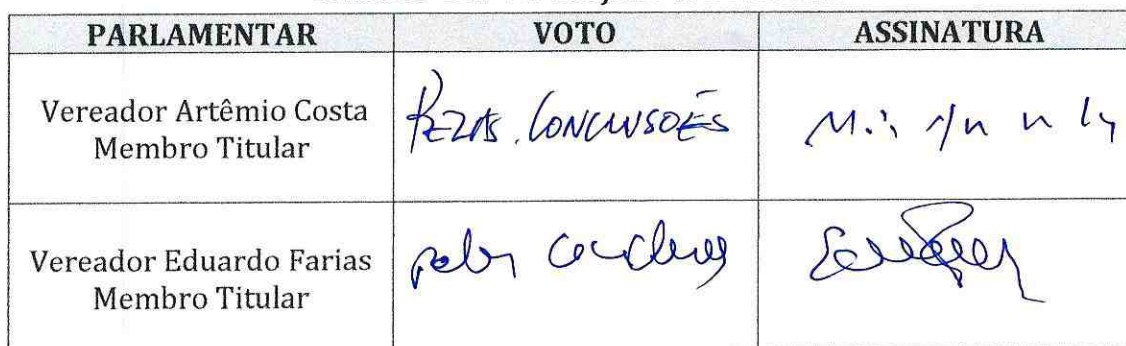 PARLAMENTAR VOTO ASSINATURA
Vereador Artêmio Costa
Membro Titular
PELAS CONCLUSÕES
Vereador Eduardo Farias
Membro Titular
pelas conclusões